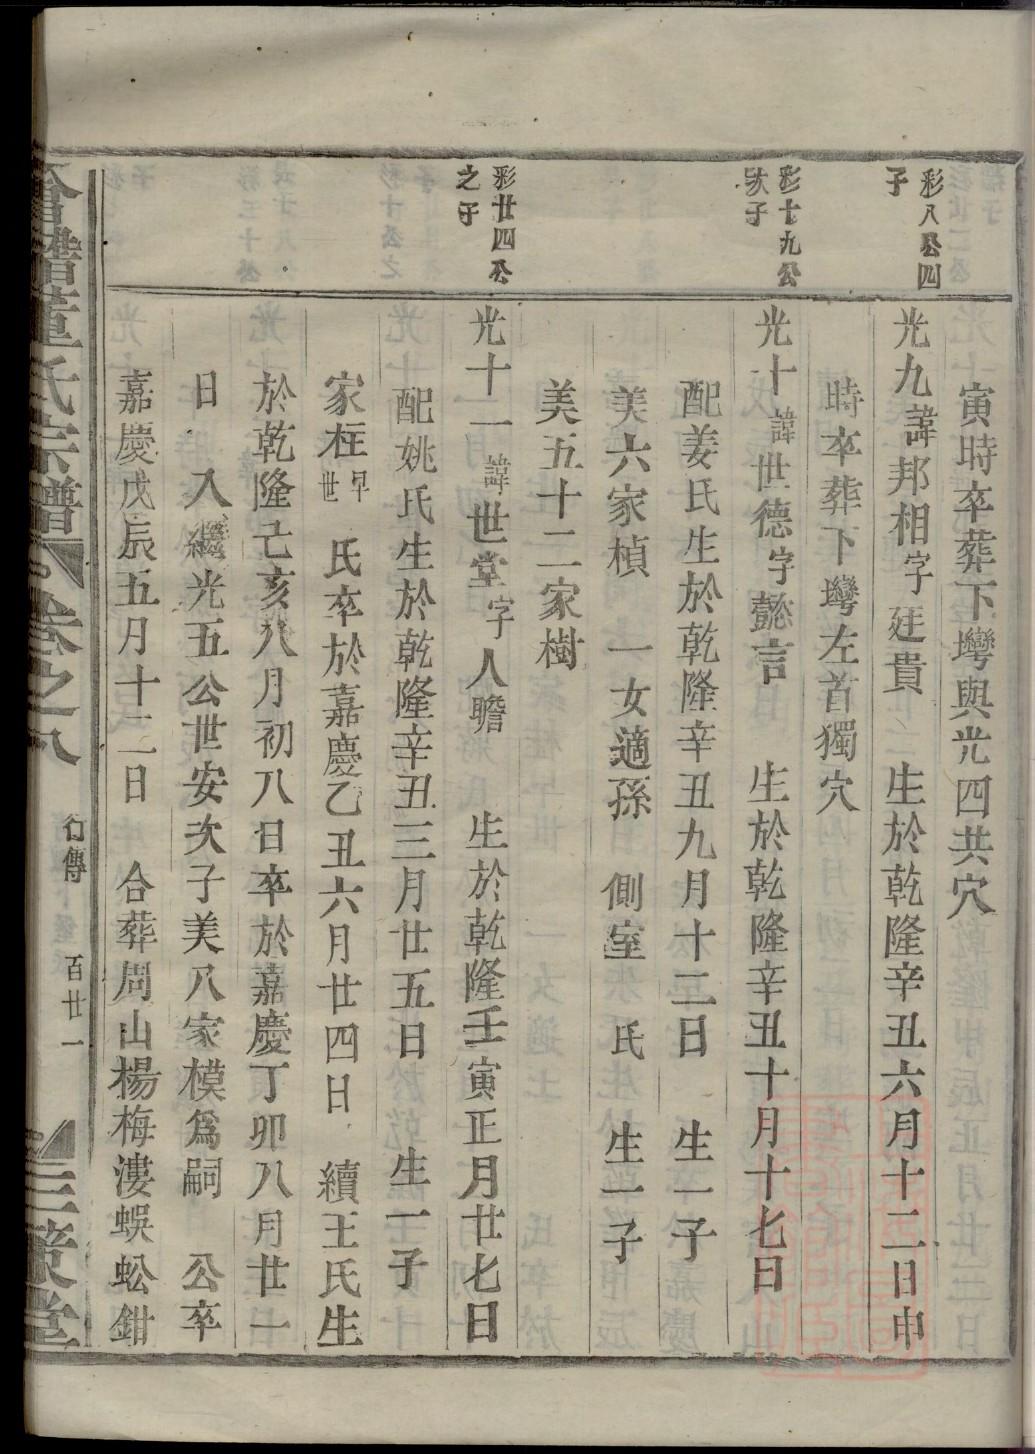 寅時卒葬下塆與光四共穴
彩八公四
子
光九諱邦相字廷貴 生於乾隆辛丑六月十二日申
時卒葬下塆左首獨穴
彩十九公
次子
光十諱世德字懿言 生於乾隆辛丑十月十七日
配姜氏生於乾隆辛丑九月十二日 生一子
美六家楨 一女適孫 側室 氏 生一子
美五十二家樹
彩廿四公
之子
光十一諱世堂字人瞻 生於乾隆壬寅正月廿七日
配姚氏生於乾隆辛丑三月廿五日 生一子
家枉早世 氏卒於嘉慶乙丑六月廿四日 續王氏生
於乾隆己亥八月初八日卒於嘉慶丁卯八月廿一
日 入繼光五公世安次子美八家模爲嗣 公卒
嘉慶戊辰五月十二日 合葬周山楊梅漊蜈蚣鉗
會譜董氏宗譜 卷之八 行傳 百廿一 三策堂